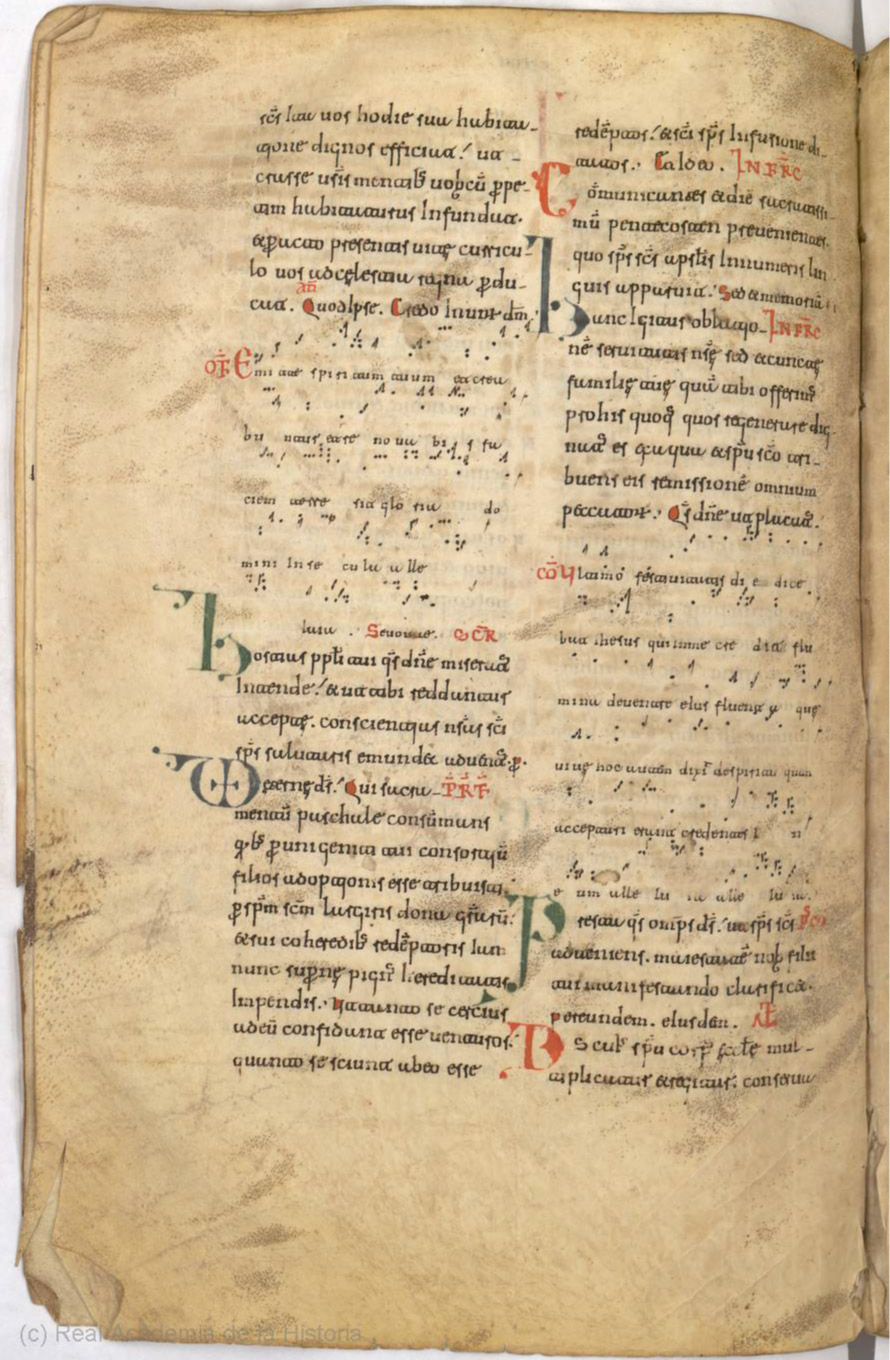 sc̄s ita uos hodie sua habita-
tione dignos efficiat! ut
crasse ur̄is mentibꝫ uobcū ꝑpe-
tim habitaturus Infundat.
et ꝑacto presentis uitę curricu-
lo uos ad celestia regna ꝑdu-
cat. Quod Ipse. Credo In unum dm̄
OF̄ Emi tte spiri tum tuum et crea
bu ntur et re noua bi s fa
ciem terre sit glo ria do
mini In se cu la a lle
luia. Seuouae. SCR̄
Hostias pp̄li tui qs̄ dn̄e miserat᷒
Intende! et ut tibi reddantur
acceptę. conscientias nr̄as sc̄i
sp̄s salutaris emundet aduent᷒. p.
VD eternę ds̄. Qui sacra- PRF̄
mentū paschale consūmans
qbꝫ ꝑ unigeniti tui consortiū
filios adoptionis esse tribuisti,
ꝑ sp̄m sc̄m largiris dona gr̄arū
et sui coheredibꝫ redēptoris iam
nunc supꝑnę pign᷒ hereditatis
Impendis. Ut tanto se certius
ad eū confidant esse uenturos.
quanto se sciunt abeo esse
redēptos! et sc̄i sp̄s Infusione di-
tatos. INFRC̄
Cōmunicantes et diē sacratissi-
mū pentecosten preuenientes.
quo sp̄s sc̄s ap̄lis Innumeris lin
guis apparuit. Sed et memoriā
Hanc Igitur oblatio- INFRC̄
nē seruitutis nr̄ę sed et cunctę
familię tuę quā tibi offerim᷒
pro his quoq; quos regenerare dig-
nat᷒ es ex aqua et sp̄u sc̄o tri-
buens eis remissionē omnium
peccator̄. Qs̄ dn̄e ut placat᷒.
CŌ Vltimo festiuitatis di e dice
bat ihesus qui in me cre dit flu
mina de uentre eius fluent a quę
uiuę hoc autem dixit de spiritu quem
accepturi erant credentes i n
e um alle lu ia alle lu ia.
Presta qs̄ omp̄s ds̄. ut sp̄s sc̄s PSC̄
adueniens. maiestatē nob̄ filii
tui manifestando clarificet.
per eundem. eiusdem. AL̄
Ds cui᷒ sp̄u corp᷒ eccl̄ę mul-
tiplicatur et regitur. conserua
(c) Real Academia de la Historia